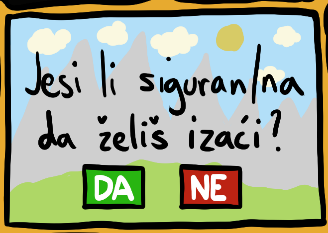 Jesi li siguran/na
da želiš izaći?
DA NE